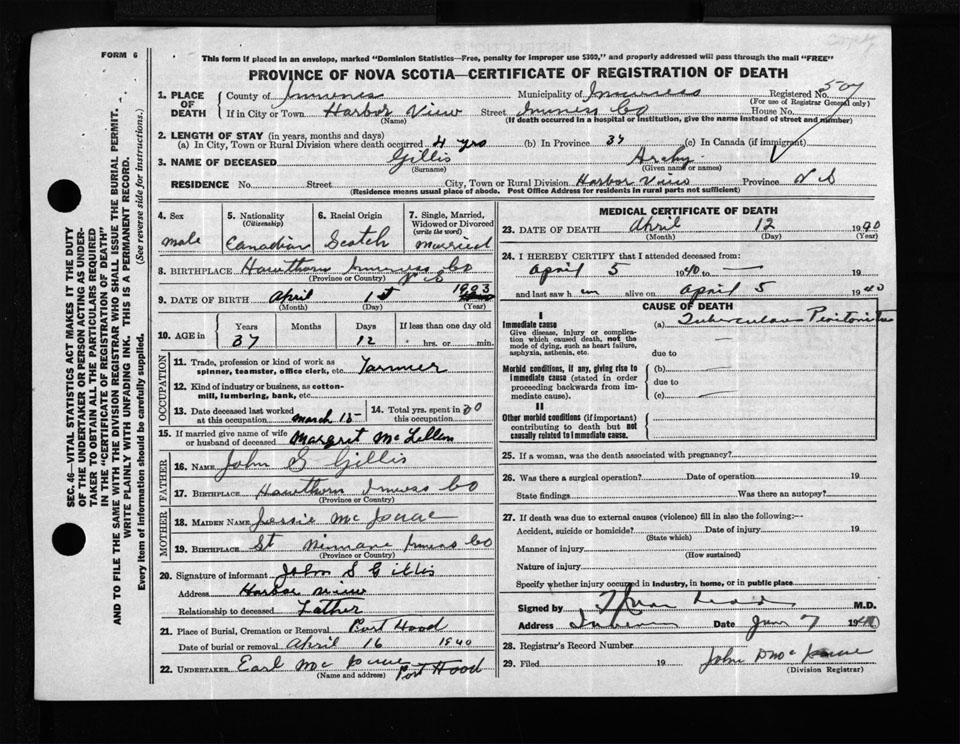 FORM 6
This form if placed in an envelope, marked "Dominion Statistics—Free, penalty for improper use $300," and properly addressed will pass through the mail "FREE"
PROVINCE OF NOVA SCOTIA—CERTIFICATE OF REGISTRATION OF DEATH
SEC. 46—VITAL STATISTICS ACT MAKES IT THE DUTY
OF THE UNDERTAKER OR PERSON ACTING AS UNDER-
TAKER TO OBTAIN ALL THE PARTICULARS REQUIRED
IN THE "CERTIFICATE OF REGISTRATION OF DEATH"
AND TO FILE THE SAME WITH THE DIVISION REGISTRAR WHO SHALL ISSUE THE BURIAL PERMIT.
WRITE PLAINLY WITH UNFADING INK. THIS IS A PERMANENT RECORD.
Every item of information should be carefully supplied. (See reverse side for instructions.)
1. PLACE OF DEATH
County of Inverness Municipality of Inverness Registered No. 507
(For use of Registrar General only)
If in City or Town Harbor View Street Inverness Co House No.
(Name) (If death occurred in a hospital or institution, give the name instead of street and number)
2. LENGTH OF STAY (in years, months and days)
(a) In City, Town or Rural Division where death occurred 4 yrs (b) In Province 37 (c) In Canada (if immigrant)
3. NAME OF DECEASED Gillis Archy
(Surname) (Given name or names)
RESIDENCE No. Street City, Town or Rural Division Harbor View Province N S
(Residence means usual place of abode. Post Office Address for residents in rural parts not sufficient)
4. Sex Male
5. Nationality (Citizenship) Canadian
6. Racial Origin Scotch
7. Single, Married, Widowed or Divorced (write the word) Married
8. BIRTHPLACE Hawthorn Inverness Co N S
(Province or Country)
9. DATE OF BIRTH April 1st 1903
(Month) (Day) (Year)
10. AGE in Years Months Days If less than one day old
37 12 hrs. or min.
OCCUPATION
11. Trade, profession or kind of work as
spinner, teamster, office clerk, etc. Farmer
12. Kind of industry or business, as cotton-
mill, lumbering, bank, etc.
13. Date deceased last worked
at this occupation march 15
14. Total yrs. spent in
this occupation 20
15. If married give name of wife
or husband of deceased Margret McLellan
FATHER
16. NAME John S Gillis
17. BIRTHPLACE Hawthorn Inverness Co
(Province or Country)
MOTHER
18. MAIDEN NAME Jessie Mc Isaac
19. BIRTHPLACE St Inverness Co
(Province or Country)
20. Signature of informant John S Gillis
Address Harbor View
Relationship to deceased Father
21. Place of Burial, Cremation or Removal Port Hood
Date of burial or removal April 16 1940
22. UNDERTAKER Earl Mc Isaac Port Hood
(Name and address)
MEDICAL CERTIFICATE OF DEATH
23. DATE OF DEATH April 12 1940
(Month) (Day) (Year)
24. I HEREBY CERTIFY that I attended deceased from:
April 5 1940 to — 19
and last saw h im alive on April 5 1940
CAUSE OF DEATH
I
Immediate cause (a) Tuberculous Peritonitis
Give disease, injury or complica-
tion which caused death, not the
mode of dying, such as heart failure,
asphyxia, asthenia, etc. due to
Morbid conditions, if any, giving rise to (b)
immediate cause (stated in order due to
proceeding backwards from im-
mediate cause). (c)
II
Other morbid conditions (if important)
contributing to death but not
causally related to immediate cause.
25. If a woman, was the death associated with pregnancy?
26. Was there a surgical operation? Date of operation 19
State findings Was there an autopsy?
27. If death was due to external causes (violence) fill in also the following:—
Accident, suicide or homicide? Date of injury 19
(State which)
Manner of injury
(How sustained)
Nature of injury
Specify whether injury occurred in industry, in home, or in public place
Signed by M.D.
Address Date 7 194
28. Registrar's Record Number
29. Filed 19 John
(Division Registrar)